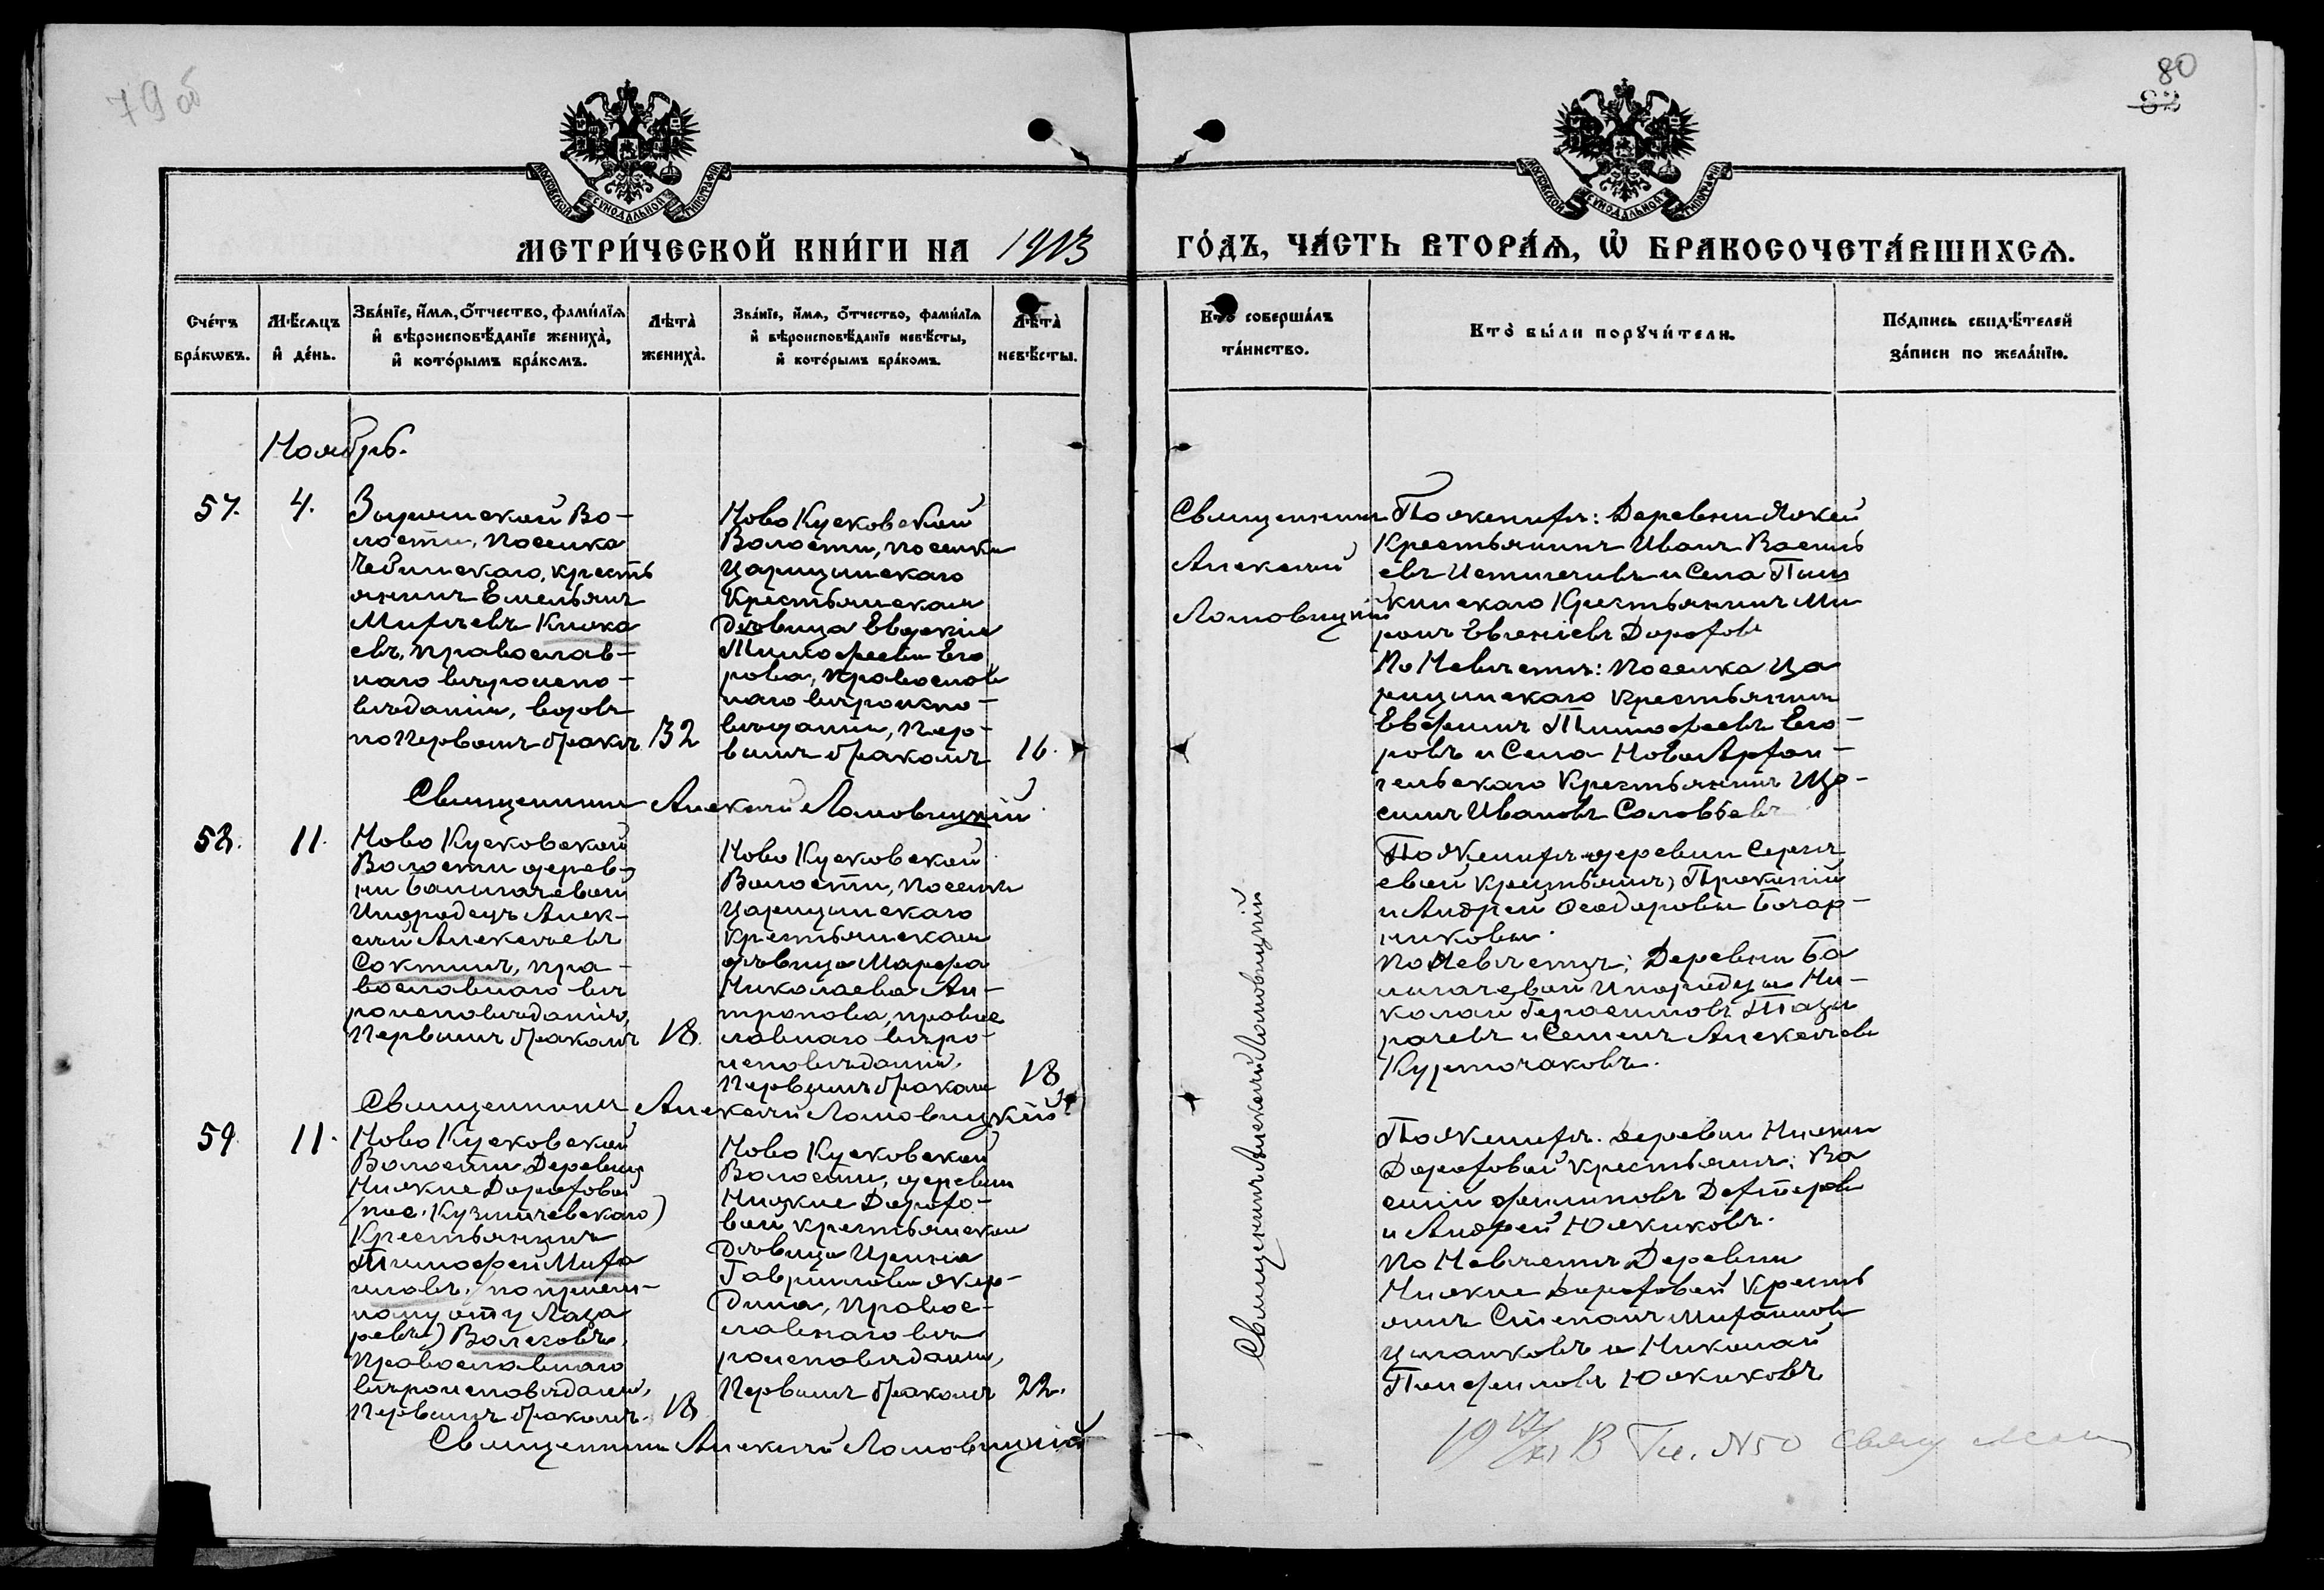 79об
80
82
МОСКОВСКОЙ СѴНОДАЛЬНОЙ ТИПОГРАФІИ
МОСКОВСКОЙ СѴНОДАЛЬНОЙ ТИПОГРАФІИ
МЕТРИ́ЧЕСКОЙ КНИ́ГИ НА 1913
ГО́ДЪ, ЧА́СТЬ ВТОРА́Ѧ, Ѡ҆ БРАКОСОЧЕТА́ВШИХСѦ.
Сче́тъ бра́кѡвъ.
Мѣ́сѧцъ и҆ де́нь.
Зва́нїе, и҆́мѧ, ѻ҆́тчество, фами́лїѧ и҆ вѣроисповѣ́данїе жениха̀, и҆ кото́рымъ бра́комъ.
Лѣта̀ жениха̀.
Зва́нїе, и҆́мѧ, ѻ҆́тчество, фами́лїѧ и҆ вѣроисповѣ́данїе невѣ́сты, и҆ кото́рымъ бра́комъ.
Лѣта̀ невѣ́сты.
Кто̀ соверша́лъ та́инство.
Кто̀ бы́ли порꙋчи́тели.
По́дпись свидѣ́телей за́писи по жела́нїю.
Ноябрь.
57.
4.
Зырянской Во-
лости, поселка
Чебинскаго, кресть
янинъ Емельянъ
Михѣевъ Княжа
евъ, православ-
наго вѣроиспо-
вѣданія, вдовъ
по первомъ бракѣ
32
Ново Кусковской
Волости, поселка
Царицынскаго
Крестьянская
Дѣвица Евдокія
Тимофеева Его
рова, православ
наго вѣроиспо-
вѣданія, пер-
вымъ бракомъ
16.
Священникъ Алексій Ломовицкій
Священникъ
Алексій
Ломовицкій
По женихѣ: Деревни
Крестьянинъ Иванъ Василь
евъ и Села Пыш
кинскаго Крестьянинъ Ми
ронъ Евгеніевъ Дорохов
По Невѣстѣ: поселка Ца
рицынскаго крестьянинъ
Евфимъ Тимофеевъ Его-
ровъ и Села Ново Архан-
гельскаго Крестьянинъ
Ивановъ Соловьевъ
58.
11.
Ново Кусковской
Волости дерев-
ни Балагачевой
Инородецъ Алек-
сѣй Алексѣевъ
Соктинъ, пра-
вославнаго вѣ
роисповѣданія,
первымъ бракомъ
18.
Ново Кусковской
Волости, поселка
Царицынскаго
крестьянская
дѣвица Марфа
Николаева Ан-
тропова, правос
лавнаго вѣро-
исповѣданія,
первымъ браком
18
Священникъ Алексій Ломовицкій
По Женихѣ деревни Серги
евой крестьяне, Прокопій
и Андрей Ѳеодоровы Бочар-
никовы.
По Невѣстѣ: Деревни Ба
лагачевой Инородцы Ни-
колай Герасимовъ
и Семенъ Алексѣевъ
Куртогаковъ.
59
11.
Ново Кусковской
Волости Деревни
Нижне Дороховой
(пос. Кузмичевскаго)
Крестьянинъ
Тимофей Миха
иловъ, (по пріем-
ному отцу Лаза
ревъ) Волковъ,
православнаго
вѣроисповѣданія,
первымъ бракомъ.
18
Ново Кусковской
Волости, деревни
Нижне Дорохо-
вой крестьянская
Дѣвица Ирина
Гаврилова
правос-
лавнаго вѣ
роисповѣданія,
первымъ бракомъ
22.
Священникъ Алексій Ломовицкій
По женихѣ. Деревни Нижне
Дороховой крестьяне: Ва
силій Филиповъ Дехтеревъ
и Андрей Южаковъ.
По Невѣстѣ Деревни
Нижне Дороховой Кресть
яне Степанъ Михаиловъ
Цыганковъ и Николай
Панфиловъ Южаковъ
Священникъ Алексій Ломовицкій
№50